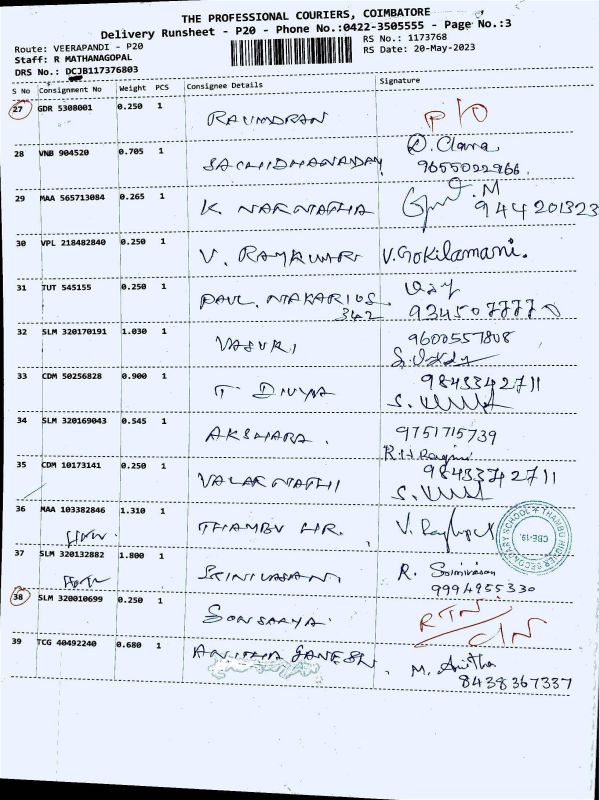 THE PROFESSIONAL COURIERS, COIMBATORE
Delivery Runsheet - P20 - Phone No.:0422-3505555 - Page No.:3
Route: VEERAPANDI - P20
RS No.: 1173768
Staff: R MATHANAGOPAL
RS Date: 20-May-2023
DRS No.: DCJB117376803
S No Consignment No Weight PCS Consignee Details Signature
27 GDR 5308001 0.250 1 RAVINDRAN P/O
28 VNB 904520 0.705 1 SACHIDHANANDAM D. Clara
9655022966
29 MAA 565713084 0.265 1 K. NARMATHA M
944201323
30 VPL 218482840 0.250 1 V. RAJKUMARI V. Gokilamani.
31 TUT 545155 0.250 1 PAUL. MAKARIUS Vijay
342 9345077770
32 SLM 320170191 1.030 1 VASUKI 9600557808
33 CDM 50256828 0.900 1 T. DIVYA 9843342711
34 SLM 320169043 0.545 1 AKSHARA. 9751715739
35 CDM 10173141 0.250 1 VALARMATHI 9843342711
36 MAA 103382846 1.310 1 THAMBU HR. V.
THAMBU HIGHER SECONDARY SCHOOL
CBE-19.
37 SLM 320132882 1.800 1 SRINIVASAN R. Srinivasan
9994955330
38 SLM 320010699 0.250 1 RTN
C/N
39 TCG 40492240 0.680 1 ANITHA GANESH. M. Anitha
8438367337